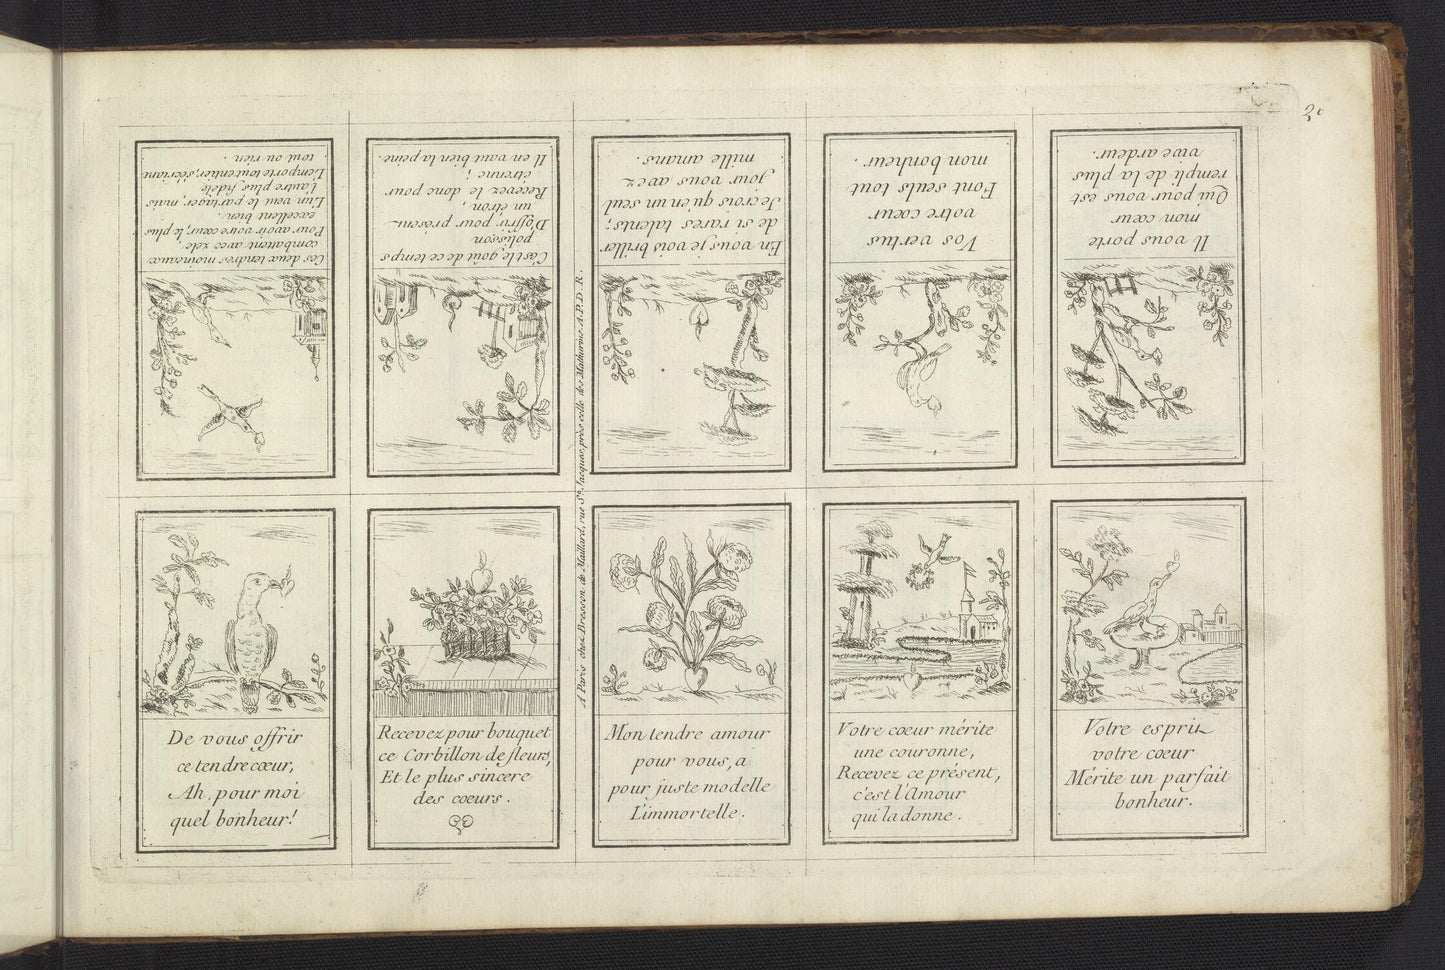 30
Ces deux tendres moineaux
combatent avec zèle
Pour avoir votre cœur, le plus
excellent bien.
L'un veut le partager, mais
l'autre plus fidèle
L'emporte tout entier, s'écriant
tout ou rien.
C'est le goût de ce temps
polisson
D'offrir, pour présent
un étron,
Recevez le donc pour
étrenne ;
Il en vaut bien la peine.
En vous je vois briller
de si rares talents ;
Je crois qu'en un seul
jour vous avez
mille amans.
Vos vertus
votre cœur
Font seuls tout
mon bonheur.
Il vous porte
mon cœur
Qui pour vous est
rempli de la plus
vive ardeur.
A Paris chez Bresson de Maillard, rue St. Jacques, près celle des Mathurins A.P.D.R.
De vous offrir
ce tendre cœur,
Ah, pour moi
quel bonheur!
Recevez pour bouquet
ce Corbillon de fleurs,
Et le plus sincere
des cœurs.
Mon tendre amour
pour vous, a
pour juste modelle
L'immortelle.
Votre cœur mérite
une couronne,
Recevez ce présent,
c'est l'Amour
qui la donne.
Votre esprit
votre cœur
Mérite un parfait
bonheur.